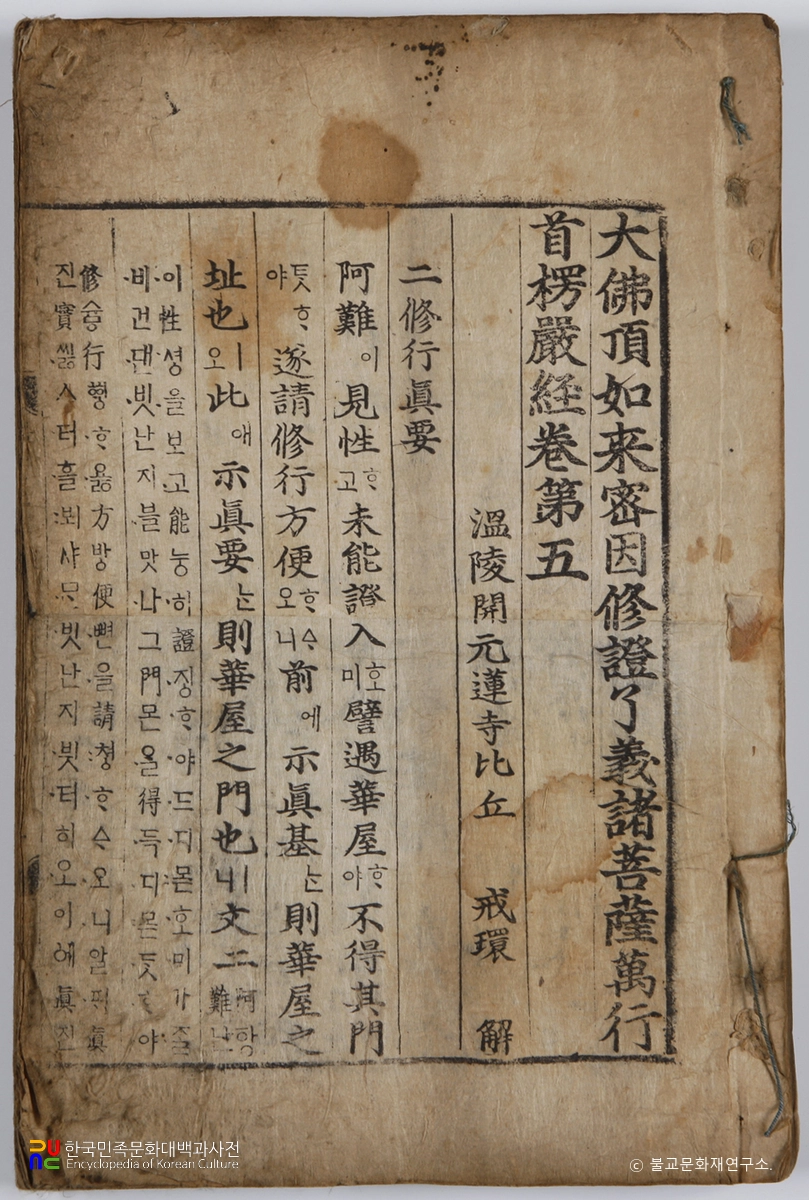 大佛頂如来密因修證了義諸菩薩萬行
首楞嚴經卷第五
溫陵開元蓮寺比丘 戒環 解
二修行眞要
阿難이見性ᄒᆞ고未能證入호미譬遇華屋ᄒᆞ야不得其門
ᄐᆞᆺᄒᆞ야遂請修行方便ᄒᆞᅀᆞ오니前에示眞基ᄂᆞᆫ則華屋之
址也ㅣ오此애示眞要ᄂᆞᆫ則華屋之門也ㅣ니文二 阿항難난
이性셩을보고能능히證징ᄒᆞ야드디몯호미가ᄌᆞᆯ
비건댄빗난지블맛나그門몬올得득디몯ᄃᆞᆺᄒᆞ야
修行ᄒᆞᇙ方방便뼌을請청ᄒᆞᅀᆞ오니알ᄑᆡ眞
진實씷ㅅ터흘뵈샤ᄆᆞᆫ빗난지븻터히오이해眞진
한국민족문화대백과사전
Encyclopedia of Korean Culture
ⓒ 불교문화재연구소.